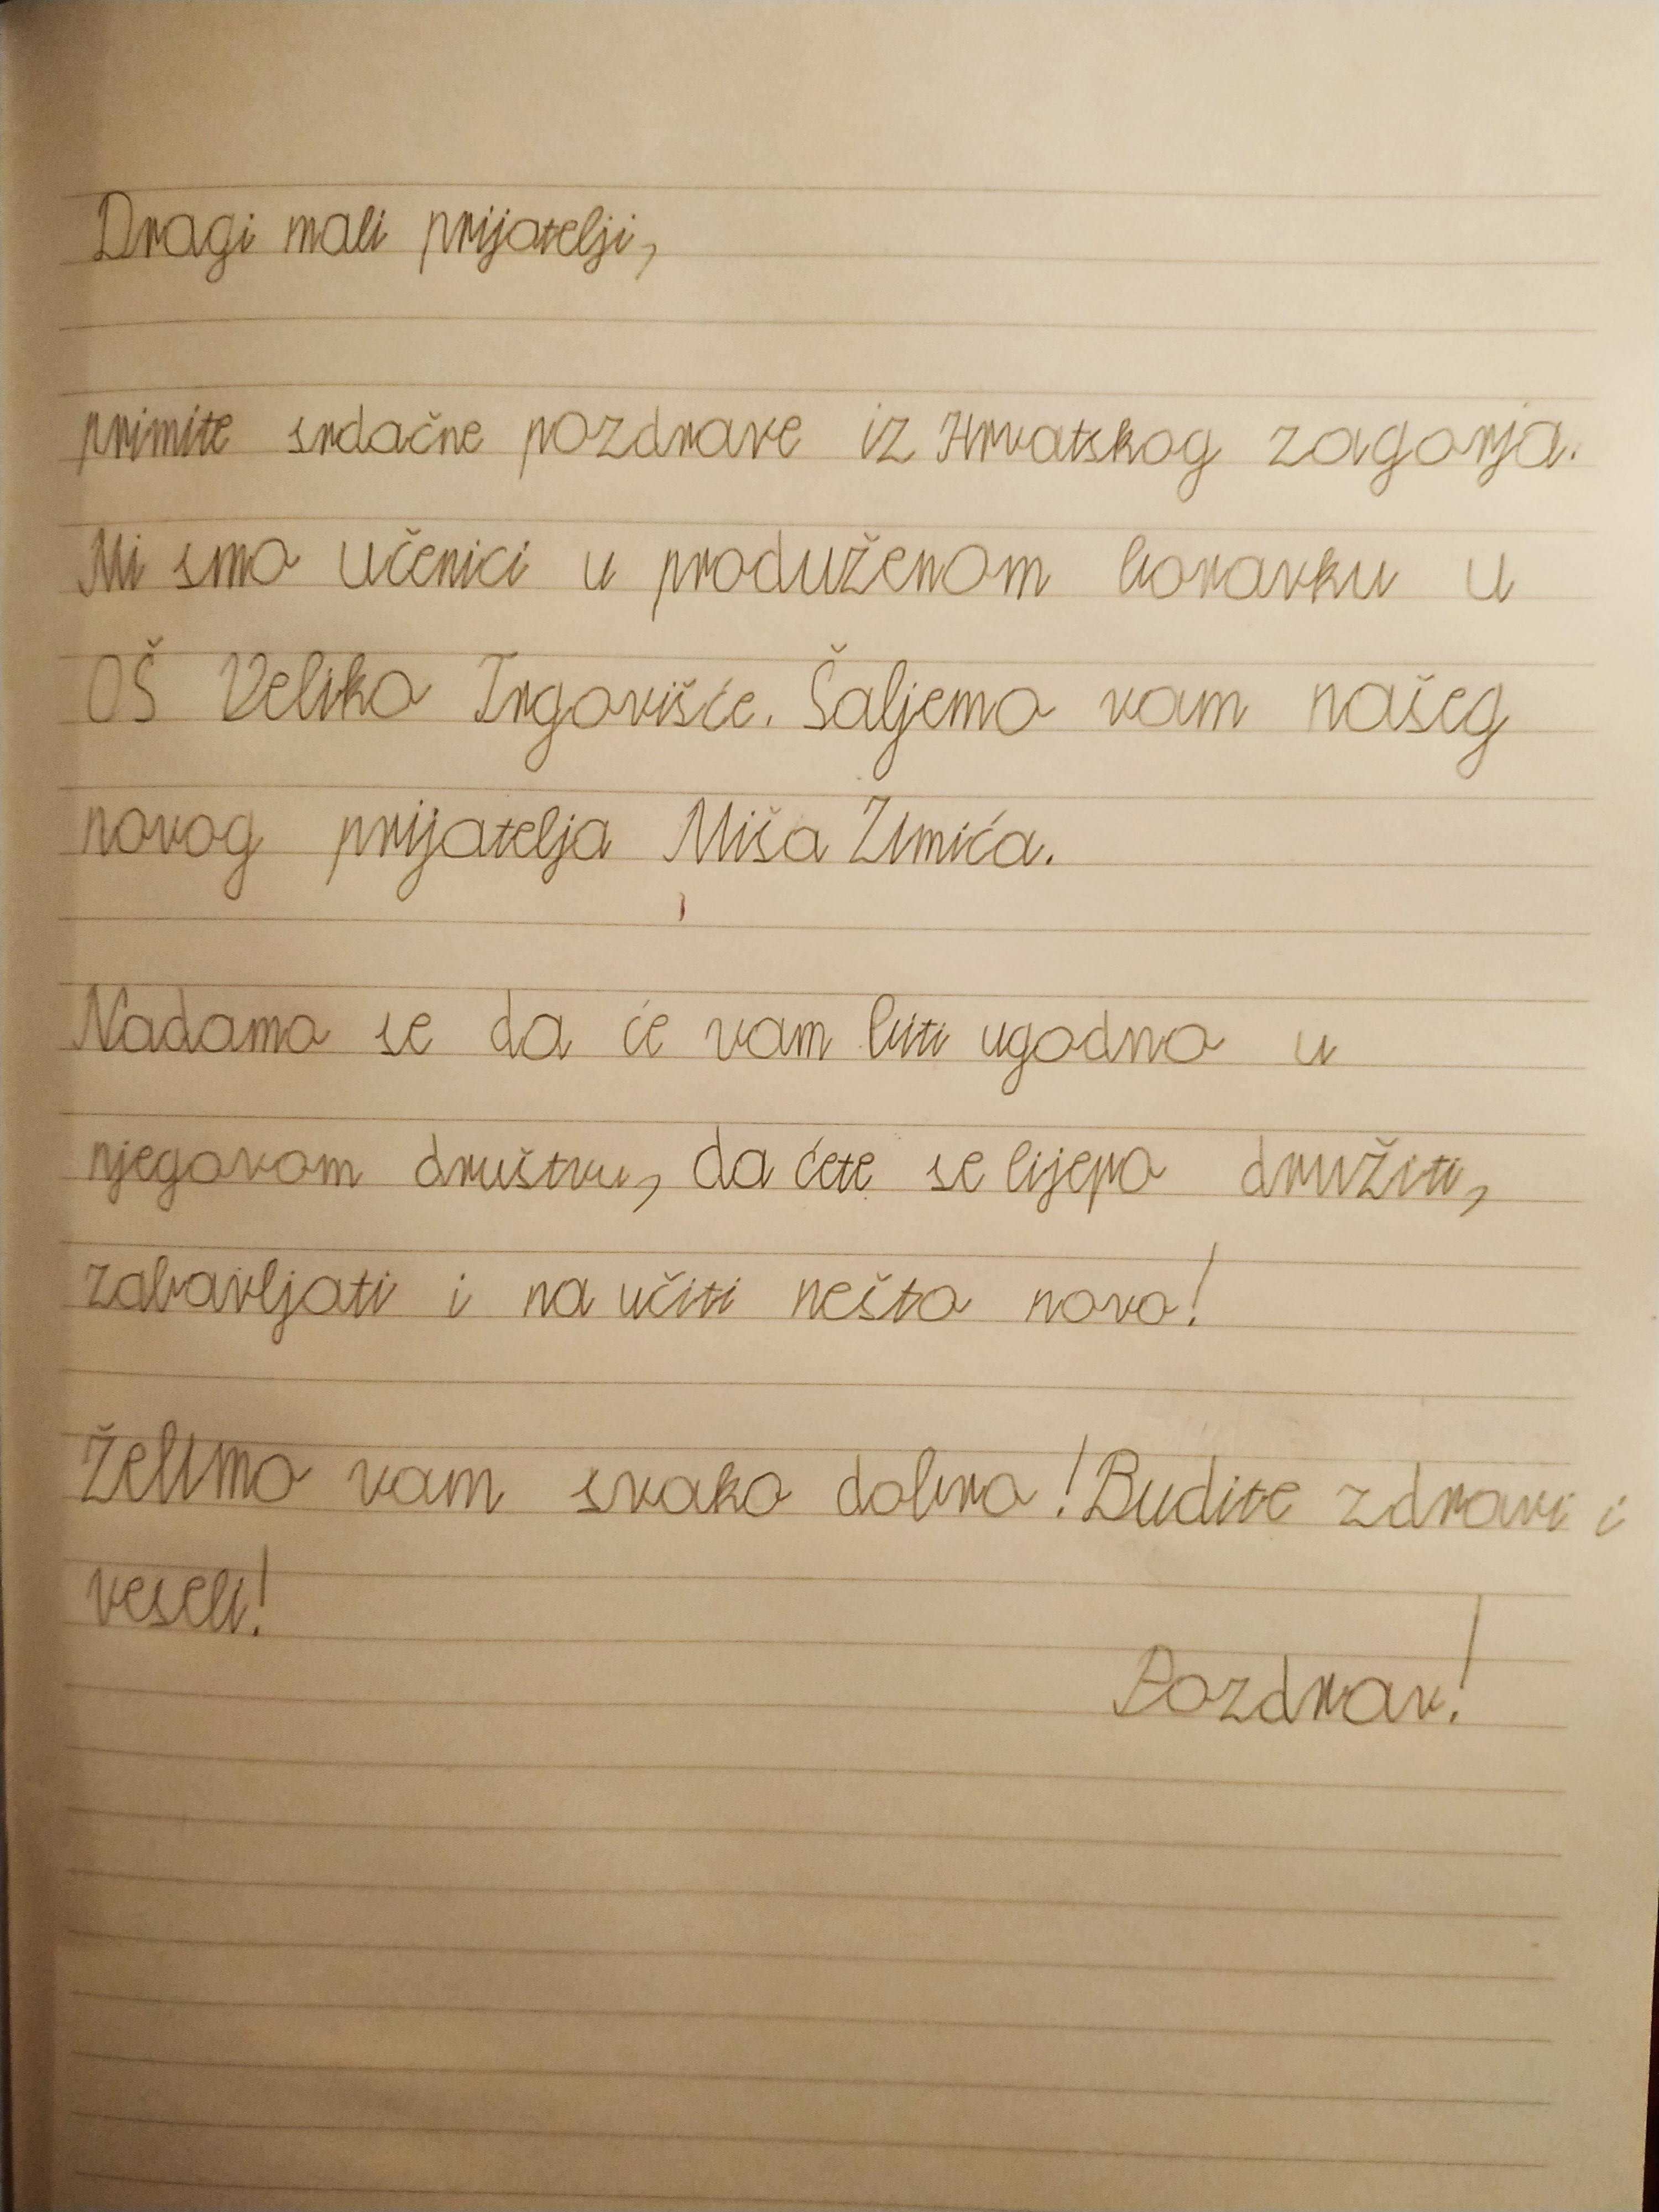 Dragi mali prijatelji,
primite srdačne pozdrave iz Hrvatskog zagorja.
Mi smo učenici u produženom boravku u
OŠ Veliko Trgovišće. Šaljemo vam našeg
novog prijatelja Miša Zimića.
Nadamo se da će vam biti ugodno u
njegovom društvu, da ćete se lijepo družiti,
zabavljati i na učiti nešto novo!
Želimo vam svako dobro! Budite zdravi i
veseli!
Pozdrav!